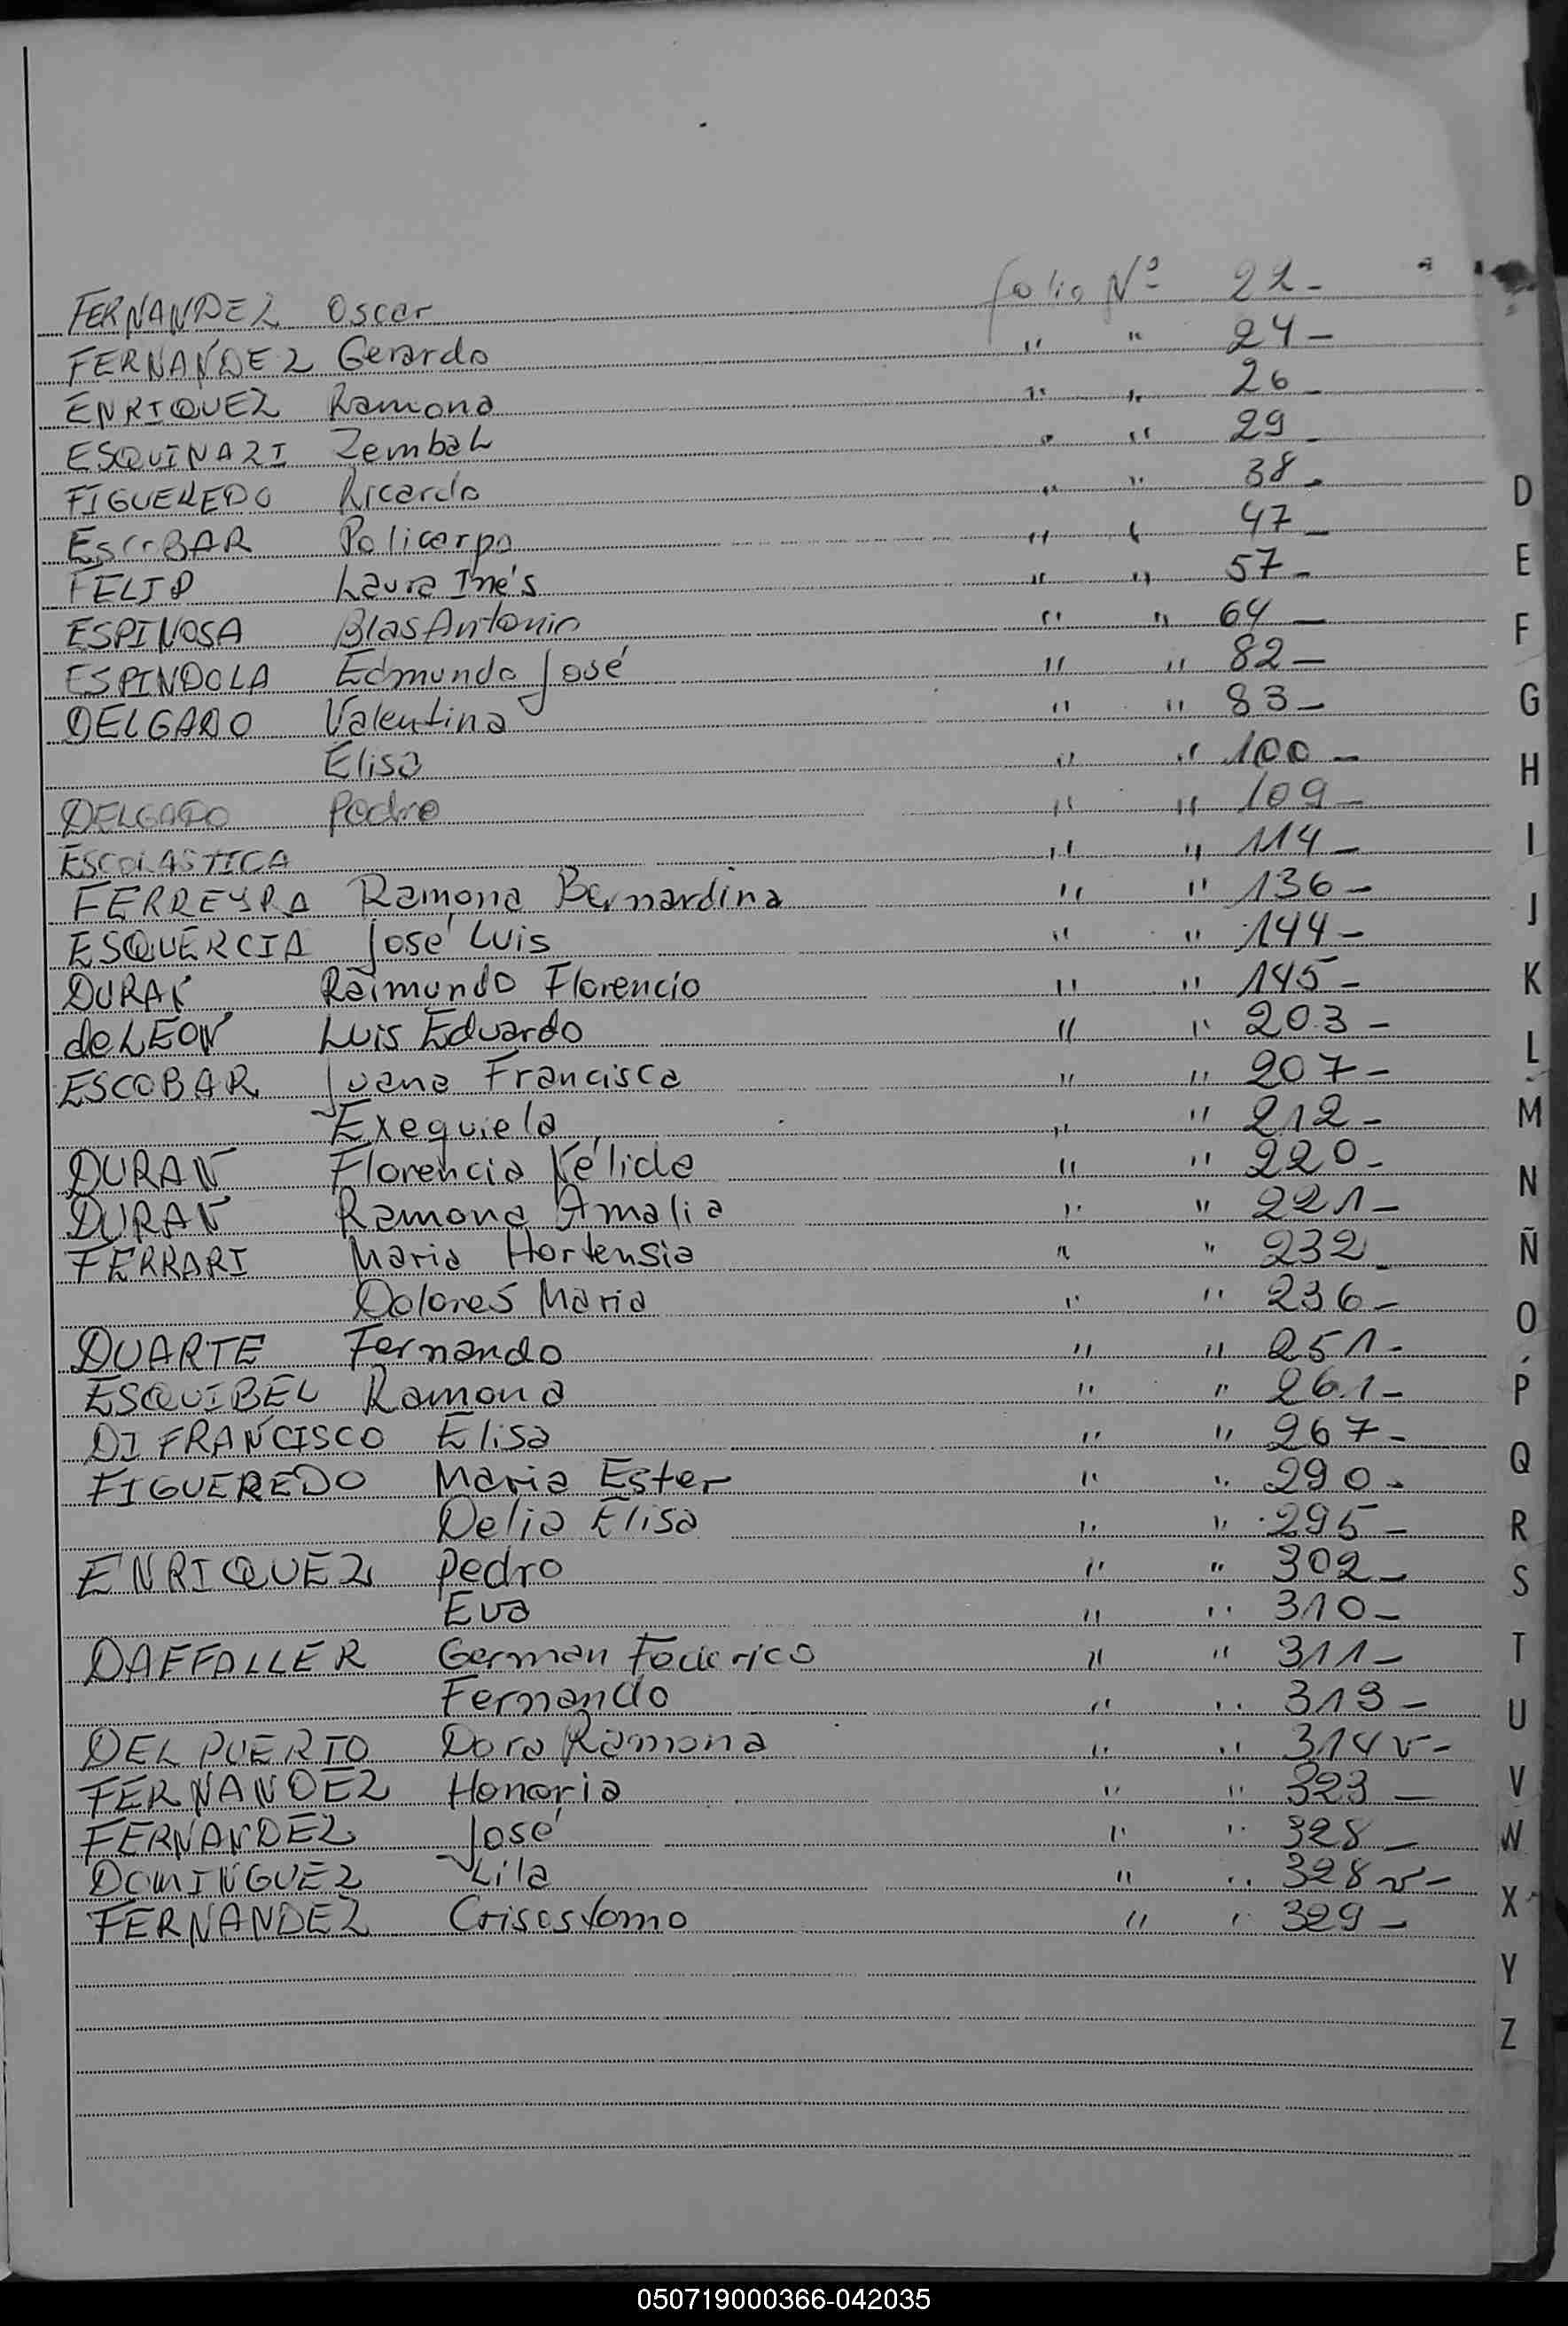 FERNANDEZ Oscar folio Nº 22-
FERNANDEZ Gerardo " " 24-
ENRIQUEZ Ramona " " 26-
ESQUINAZI Zembah " " 29-
FIGUEREDO Ricardo " " 38-
ESCOBAR Policarpo " " 47-
FELIP Laura Inés " " 57-
ESPINOSA Blas Antonio " " 64-
ESPINDOLA Edmundo José " " 82-
DELGADO Valentina " " 83-
Elisa " " 100-
DELGADO Pedro " " 109-
ESCOLASTICA " " 114-
FERREYRA Ramona Bernardina " " 136-
ESQUERCIA José Luis " " 144-
DURAN Raimundo Florencio " " 145-
de LEON Luis Eduardo " " 203-
ESCOBAR Juana Francisca " " 207-
Exequiela " " 212-
DURAN Florencia Nélida " " 220-
DURAN Ramona Amalia " " 221-
FERRARI Maria Hortensia " " 232-
Dolores Maria " " 236-
DUARTE Fernando " " 251-
ESQUIBEL Ramona " " 261-
DI FRANCISCO Elisa " " 267-
FIGUEREDO Maria Ester " " 290-
Delia Elisa " " 295-
ENRIQUEZ Pedro " " 302-
Eva " " 310-
DAEFALLER German Federico " " 311-
Fernando " " 313-
DEL PUERTO Dora Ramona " " 314v-
FERNANDEZ Honoria " " 323-
FERNANDEZ José " " 328-
DOMINGUEZ Lila " " 328v-
FERNANDEZ Crisostomo " " 329-
D
E
F
G
H
I
J
K
L
M
N
Ñ
O
P
Q
R
S
T
U
V
W
X
Y
Z
050719000366-042035